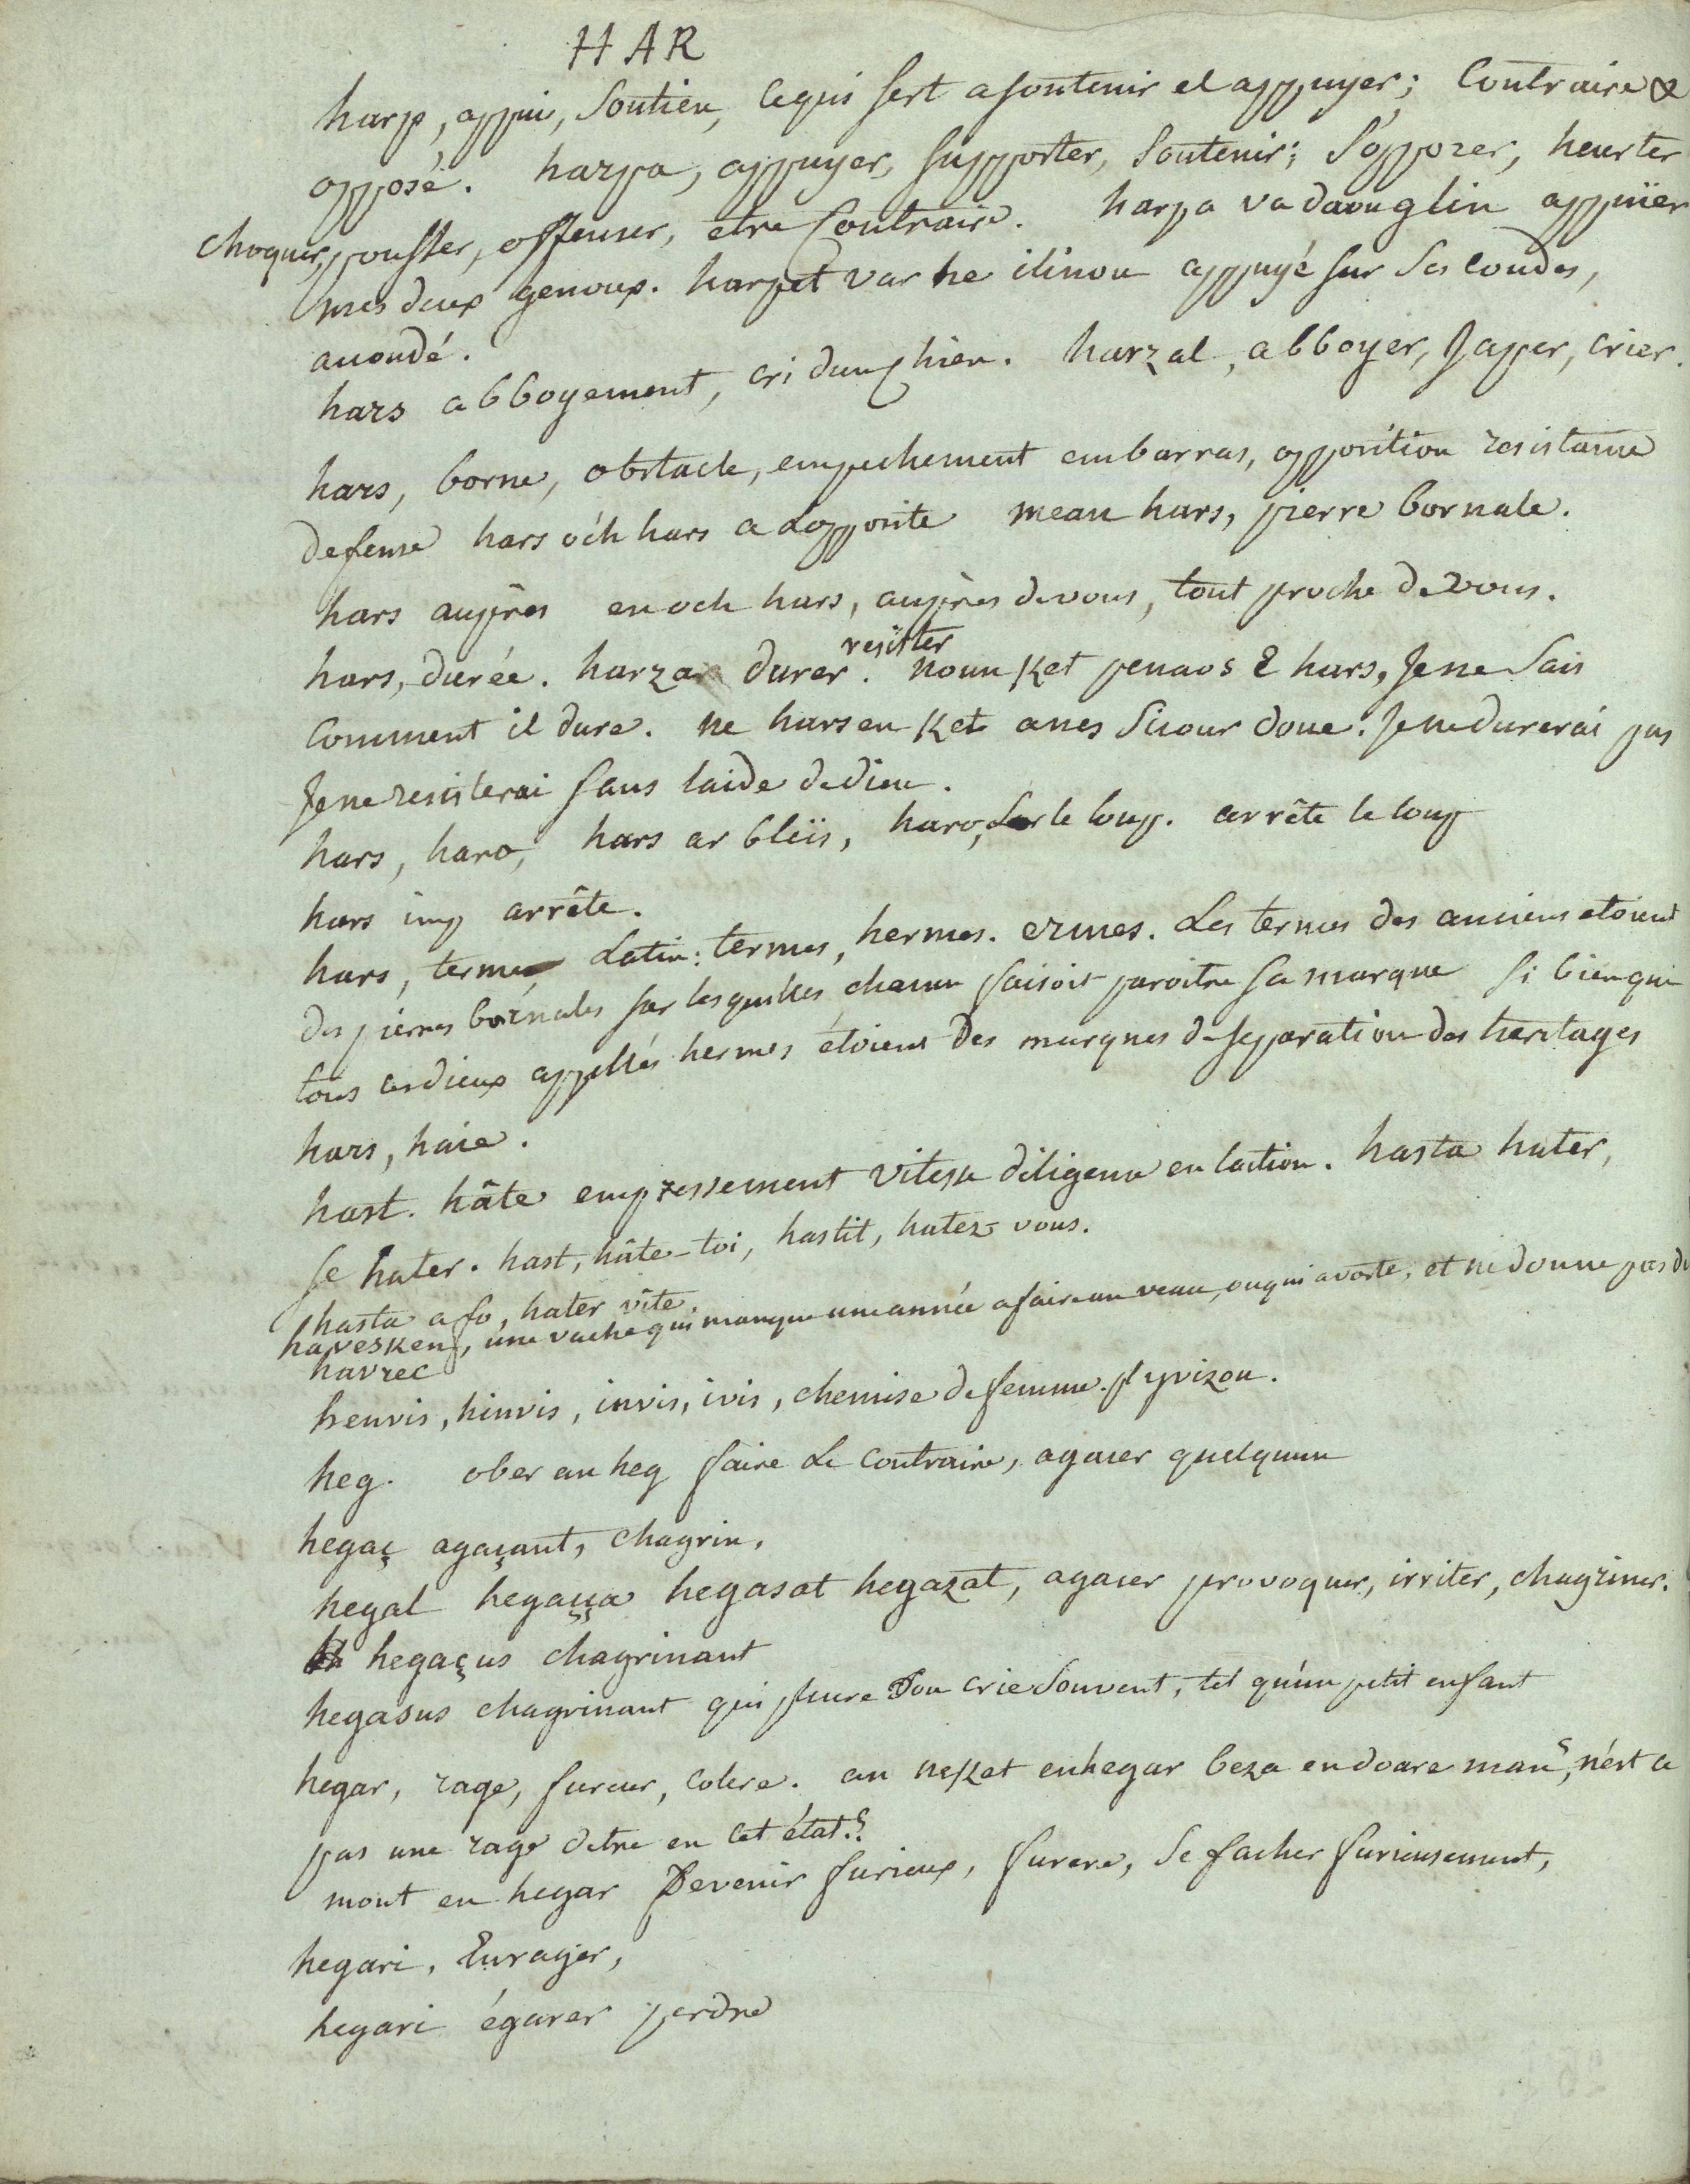 HAR
harp, appui, Soutien, cequi sert asoutenir et appuyer; Contraire &
opposé. harpa, appuyer, supporter, Soutenir; S'opposer, heurter
choquer, pousser, offenser, etre Contraire. harpa va daouglin appuïer
mes deux genoux. harpet var he ilinou appuyé sur Ses Coudes,
acoudé.
hars abboyement, cri dun Chien. harzal, abboyer, Japer, crier.
hars, borne, obstacle, empechement embarras, opposition resistance
defense hars óch hars a Lopposite mean hars, pierre bornale.
hars auprès en och hars, auprès devous, tout proche de vous.
resister
hars, durée. harza durer. noun ket penaos E hars, Je ne Sais
Comment il dure. ne harsen ket anes Sicour doue. Je ne durerai pas
Je ne resisterai sans laide de dieu.
hars, haro, hars ar bleïs, haro, sur le loup. arrête le loup
hars imp arrête.
hars, terme, Latin: termes, hermes. ermes. Les termes des anciens etoient
des pierres bornales sur lesquelles chacun faisoit paroitre sa marque si bien que
tous ces dieux appellés hermes étoient Des marques de separation des heritages
hars, haie.
hast. hâte empressement Vitesse diligence en laction. hasta hater,
se hater. hast, hâte-toi, hastit, hatez-vous.
hasta afo, hater vîte.
havesken, une vache qui manque une année afaire un veau, ou qui avorte, et ne donne pas de
havrec
henvis, hinvis, invis, ivis, chemise de femme. pl yvizou.
heg. ober an heg faire Le contraire, agacer quelquun
hegaç agaçant, chagrin,
hegal hegaçça hegasat hegazat, agacer provoquer, irriter, chagriner.
hegaçus chagrinant
hegasus chagrinant qui pleure ou crie Souvent, tel qu'un petit enfant
hegar, rage, fureur, colere. an neket enhegar beza en doare man? n'est ce
pas une rage detre en cet état?
mont en hegar Devenir furieux, furere, Se facher furieusement,
hegari, Enrager,
hegari égarer perdre